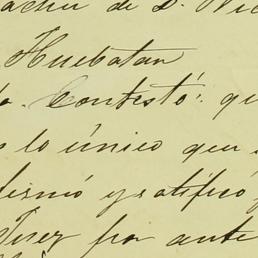 de D. Nic
Huebatan
Contestó: qu
lo único que
firmó y ratificó
Juez por ante